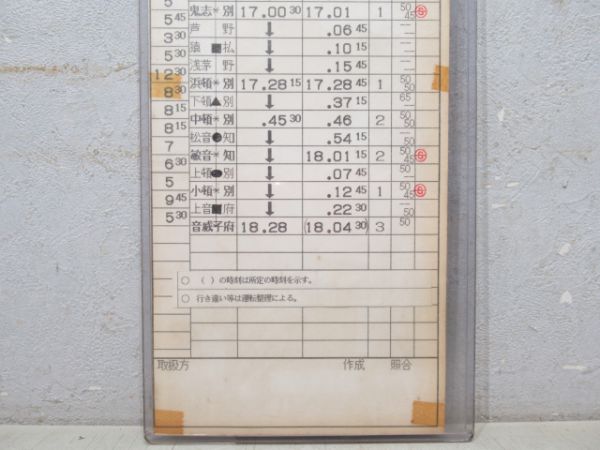 5 45 鬼志*別 17.00 30 17.01 1 50 45
3 45 芦野 ↓ .06 45
5 30 猿■払 ↓ .10 15
浅茅野 ↓ .15 45
12 30 浜頓*別 17.28 15 17.28 45 1 50 50
8 30 下頓▲別 ↓ .37 15 65
8 15 中頓*別 .45 30 .46 2 50 50
8 15 松音●知 ↓ .54 15
7 敏音*知 ↓ 18.01 15 2 50 45
6 30 上頓●別 ↓ .07 45
5 小頓*別 ↓ .12 45 1 50 45
9 45 上音■府 ↓ .22 30
5 30 音威子府 18.28 (18.04 30) 3 50
○ ( )の時刻は所定の時刻を示す。
○ 行き違い等は運転整理による。
取扱方 作成 照合